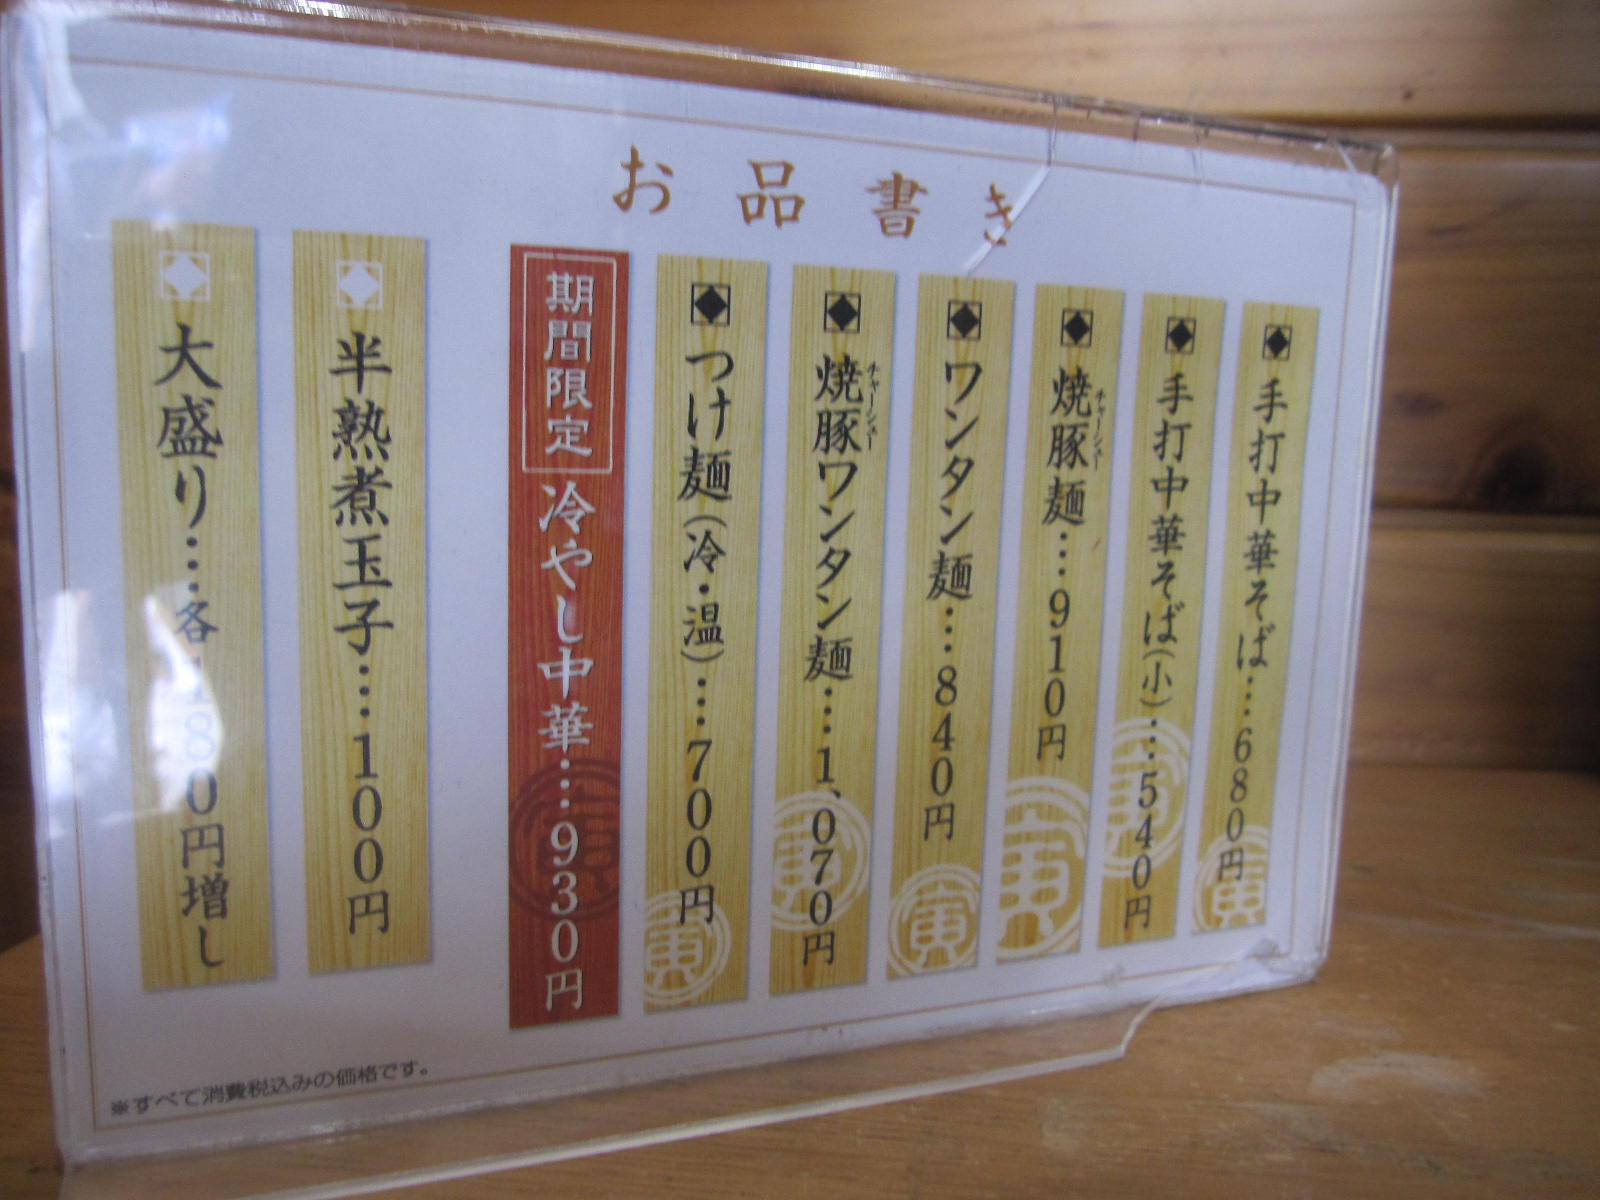 お品書き
手打中華そば…680円
手打中華そば(小)…540円
焼豚麺…910円
チャーシュー
ワンタン麺…840円
焼豚ワンタン麺…1,070円
チャーシュー
つけ麺(冷・温)…700円
期間限定 冷やし中華…930円
半熟煮玉子…100円
大盛り…各180円増し
※すべて消費税込みの価格です。
寅
寅
寅
寅
寅
寅
寅